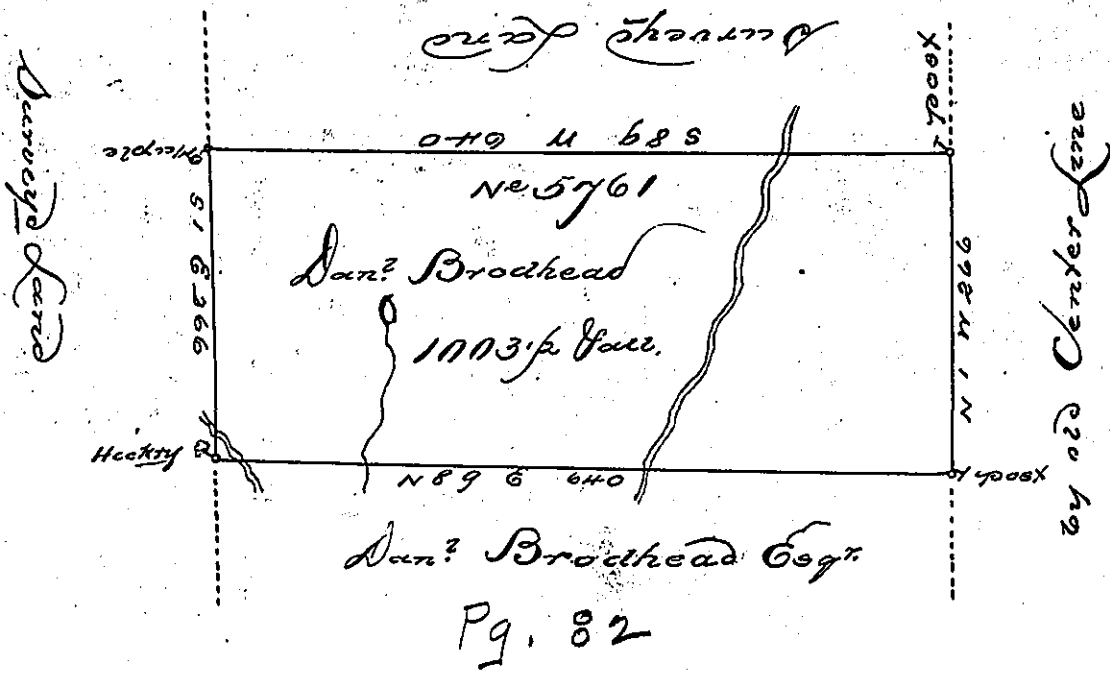 Surveyd Land
S 89 W 640
post
Maple
No 5761
Danl. Brodhead
1003 p
S 1 E 266
N 1 W 266
Surveyd Land
Center Line
Hickry
N 89 E 640
post
Danl. Brodhead Esqr.
Pg. 82